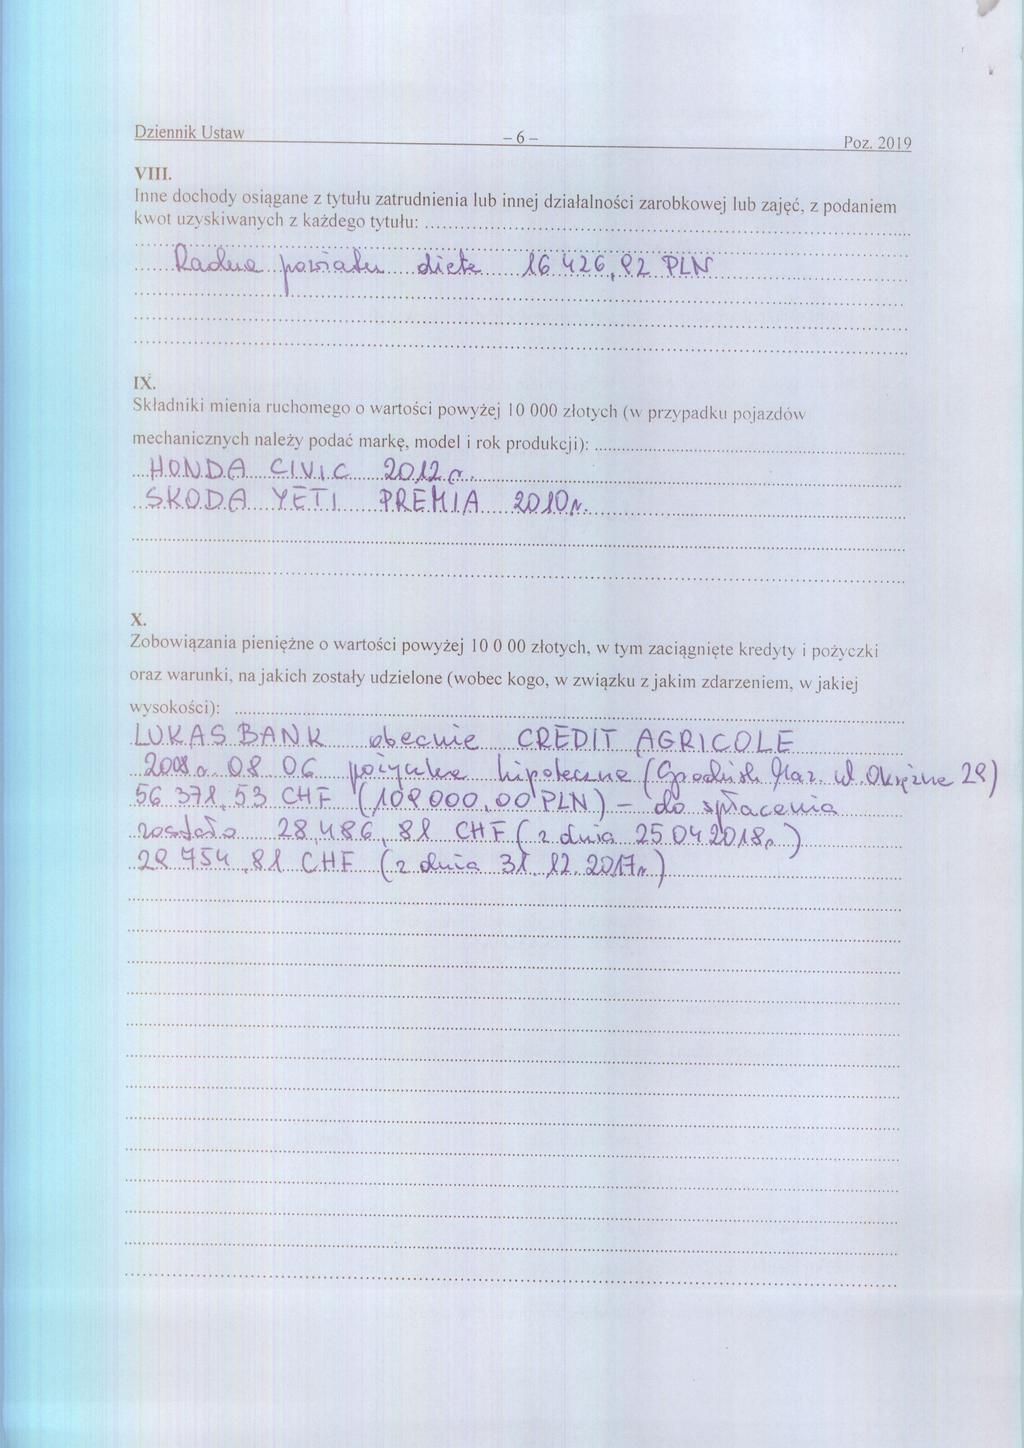 Dziennik Ustaw – 6 – Poz. 2019
VIII.
Inne dochody osiągane z tytułu zatrudnienia lub innej działalności zarobkowej lub zajęć, z podaniem
kwot uzyskiwanych z każdego tytułu:
Radna powiatu dieta 16 426,92 PLN
IX.
Składniki mienia ruchomego o wartości powyżej 10 000 złotych (w przypadku pojazdów
mechanicznych należy podać markę, model i rok produkcji):
HONDA CIVIC 2012 r.
SKODA YETI PREMIA 2010r.
X.
Zobowiązania pieniężne o wartości powyżej 10 0 00 złotych, w tym zaciągnięte kredyty i pożyczki
oraz warunki, na jakich zostały udzielone (wobec kogo, w związku z jakim zdarzeniem, w jakiej
wysokości):
LUKAS BANK obecnie CREDIT AGRICOLE
2008 r. 08 06 pożyczka hipoteczna (Grodzisk Maz. ul. Okrężna 29)
56 371,53 CHF (109 000,00 PLN) – do spłacenia
zostało 28,486,81 CHF (z dnia 25.04 2018r)
29 754,81 CHF (z dnia 31.12.2017r)